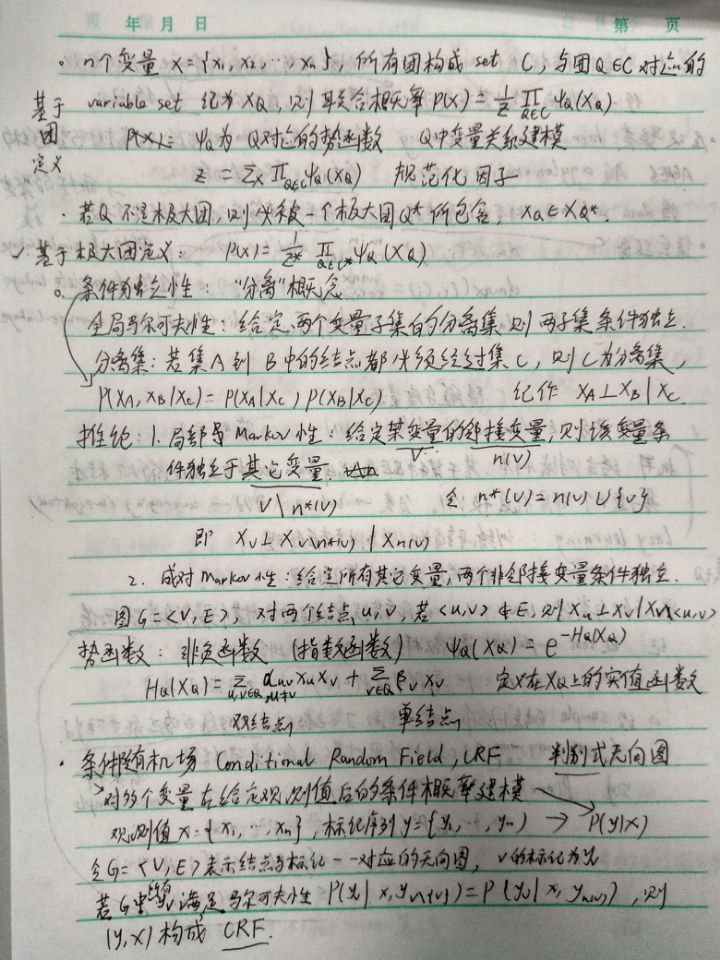 年 月 日 第 页
。n个变量 x={x₁, x₂, …, xₙ}, 所有团构成 set C, 与团Q∈C对应的
基于团定义 variable set 记为 X_Q, 则联合概率 P(X)= 1/Z ∏_{Q∈C} ψ_Q(X_Q)
ψ_Q为 Q对应的势函数 Q中变量关系建模
Z = Σ_X ∏_{Q∈C} ψ_Q(X_Q) 规范化因子
· 若Q不是极大团, 则必被一个极大团Q*所包含, X_Q ∈ X_Q*.
✓基于极大团定义: P(X)= 1/Z* ∏_{Q∈C*} ψ_Q(X_Q)
。条件独立性: “分离”概念
全局马尔可夫性: 给定两个变量子集的分离集则两子集条件独立.
分离集: 若集A到B中的结点都必须经过集C, 则C为分离集,
P(X_A, X_B|X_C) = P(X_A|X_C) P(X_B|X_C) 记作 X_A⊥X_B|X_C
推论: 1. 局部 Markov性: 给定某变量的邻接变量, 则该变量条
V n(v)
件独立于其它变量.
V \ n*(v) 令 n*(v) = n(v) ∪ {v}
即 X_v ⊥ X_{V\n*(v)} | X_{n(v)}
2. 成对 Markov性: 给定所有其它变量, 两个非邻接变量条件独立.
图G=<V, E>, 对两个结点u, v, 若<u,v>∉E, 则X_u⊥X_v|X_{V\<u,v>}
势函数: 非负函数 (指数函数) ψ_Q(X_Q) = e^{-H_Q(X_Q)}
H_Q(X_Q) = Σ_{u,v∈Q, u≠v} α_{uv} x_u x_v + Σ_{v∈Q} β_v x_v 定义在X_Q上的实值函数
双结点 单结点
· 条件随机场 Conditional Random Field, CRF 判别式无向图
>对多个变量在给定观测值后的条件概率建模
观测值 x={x₁, …, xₙ}, 标记序列 y={y₁, …, yₙ} → P(y|x)
令G=<V, E>表示结点与标记一一对应的无向图, v的标记为y_v
若G中 满足马尔可夫性 P(y_v| x, y_{V\{v}}) = P(y_v| x, y_{n(v)}), 则
(y, x) 构成 CRF.